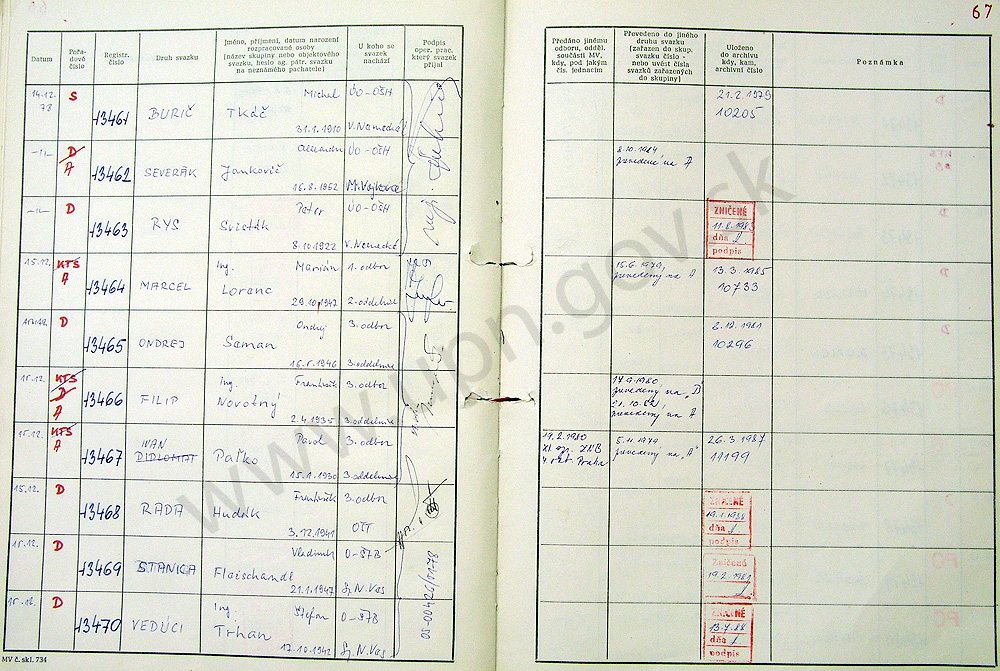 67
Datum
Pořa-
dové
číslo
Registr.
číslo
Druh svazku
Jméno, příjmení, datum narození
rozpracované osoby
(název skupiny nebo objektového
svazku, heslo ag. pátr. svazku
na neznámého pachatele)
U koho se
svazek
nachází
Podpis
oper. prac.
který svazek
přijal
Předáno jinému
odboru, odděl.
součásti MV.
kdy, pod jakým
čís. jednacím
Převedeno do jiného
druhu svazku
(zařazen do skup.
svazku číslo -
nebo uvést čísla
svazků zařazených
do skupiny)
Uloženo
do archivu
kdy, kam,
archivní číslo
Poznámka
14.12.
78
S
13461
BURIČ
Michal
Tkáč
31.1.1910
ÚO-OŠH
V. Nemecká
21.2.1979
10205
-"-
D
A
13462
SEVERÁK
Alexander
Jankovič
16.8.1952
ÚO-OŠH
M. Vojkovce
8.10.1984
prevedené na A
-"-
D
13463
RYS
Peter
Svisták
8.10.1922
ÚO-OŠH
V. Nemecké
ZNIČENÉ
11.2.1983
dňa
podpis
15.12.
KTS
A
13464
MARCEL
Ing. Marián
Lorenc
29.10.1947
1. odbor
2. oddelenie
15.6.1979
prevedený na A
13.3.1985
10733
15.12.
D
13465
ONDREJ
Ondrej
Seman
16.5.1946
3. odbor
3. oddelenie
8.12.1981
10296
15.12.
KTS
D
A
13466
FILIP
Ing. František
Novotný
2.4.1935
3. odbor
3. oddelenie
17.9.1980
prevedený na "D"
prevedený na A
15.12.
KTS
A
13467
IVAN
DIPLOMAT
Pavol
Paľko
15.1.1930
3. odbor
3. oddelenie
19.2.1980
Praha
5.11.1979
prevedený na "A"
26.3.1987
11199
15.12.
D
13468
RADA
František
Hudák
3.12.1941
3. odbor
OŠT
ZNIČENÉ
19.1.1988
dňa
podpis
15.12.
D
13469
STANICA
Vladimír
Fleischandl
21.1.1947
O-ŠTB
Sp. N. Ves
05-00426/01-78
Zničené
19.2.1981
15.12.
D
13470
VEDÚCI
Ing. Štefan
Trhan
17.10.1942
O-ŠTB
Sp. N. Ves
ZNIČENÉ
13.7.88
dňa
podpis
MV č. skl. 734
www.upn.gov.sk